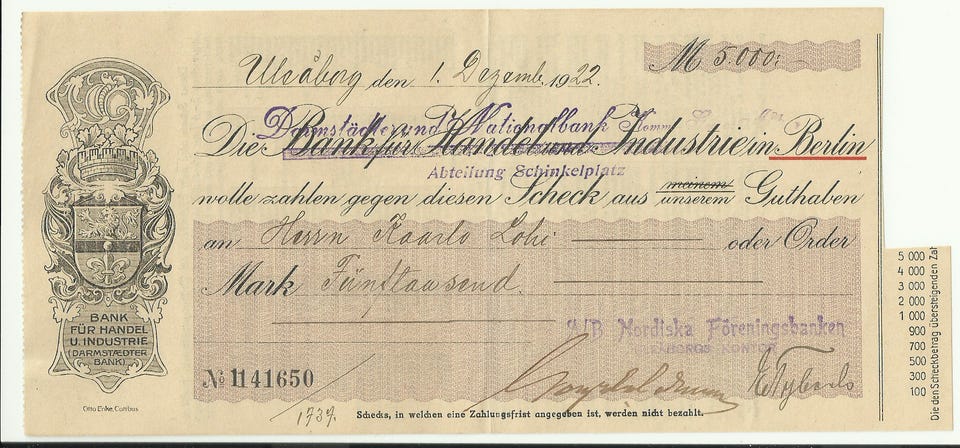 M 5.000:
Uleåborg den 1. Dezemb. 1922
Darmstädter und Nationalbank Komm
Die Bank für Handel und Industrie in Berlin
Abteilung Schinkelplatz
wolle zahlen gegen diesen Scheck aus meinem unserem Guthaben
an Herrn Kaarlo Lohi oder Order
Mark Fünftausend.
A/B Nordiska Föreningsbanken
ULEÅBORGS KONTOR
BANK
FÜR HANDEL
U. INDUSTRIE
(DARMSTÆDTER
BANK)
No 1141650
Otto Enke, Cottbus
1737.
Schecks, in welchen eine Zahlungsfrist angegeben ist, werden nicht bezahlt.
5 000
4 000
3 000
2 000
1 000
900
700
500
300
100
Die den Scheckbetrag übersteigenden